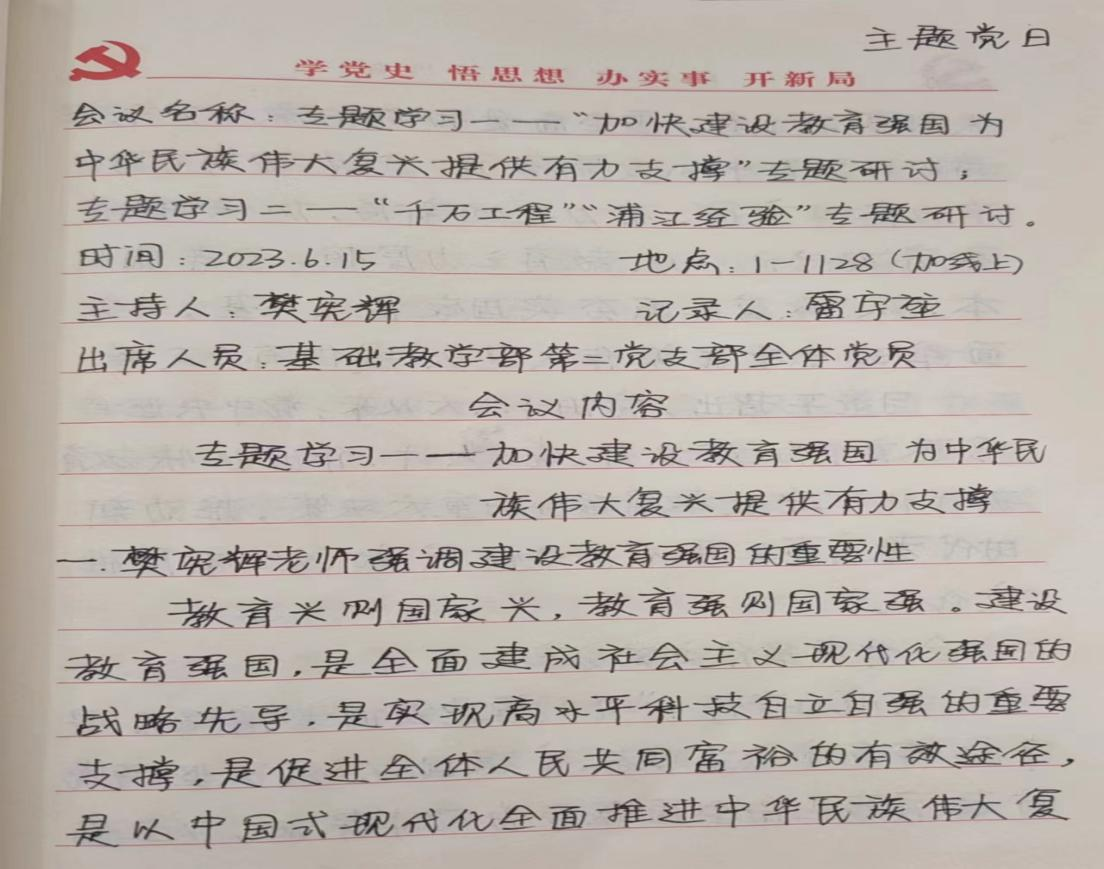 主题党日
学党史 悟思想 办实事 开新局
会议名称：专题学习一——“加快建设教育强国 为
中华民族伟大复兴提供有力支撑”专题研讨；
专题学习二——“千万工程”“浦江经验”专题研讨。
时间：2023.6.15 地点：1-1128（加线上）
主持人：樊宪辉 记录人：雷宇
出席人员：基础教学部第二党支部全体党员
会议内容
专题学习一——加快建设教育强国 为中华民
族伟大复兴提供有力支撑
一.樊宪辉老师强调建设教育强国的重要性
教育兴则国家兴，教育强则国家强。建设
教育强国，是全面建成社会主义现代化强国的
战略先导，是实现高水平科技自立自强的重要
支撑，是促进全体人民共同富裕的有效途径，
是以中国式现代化全面推进中华民族伟大复